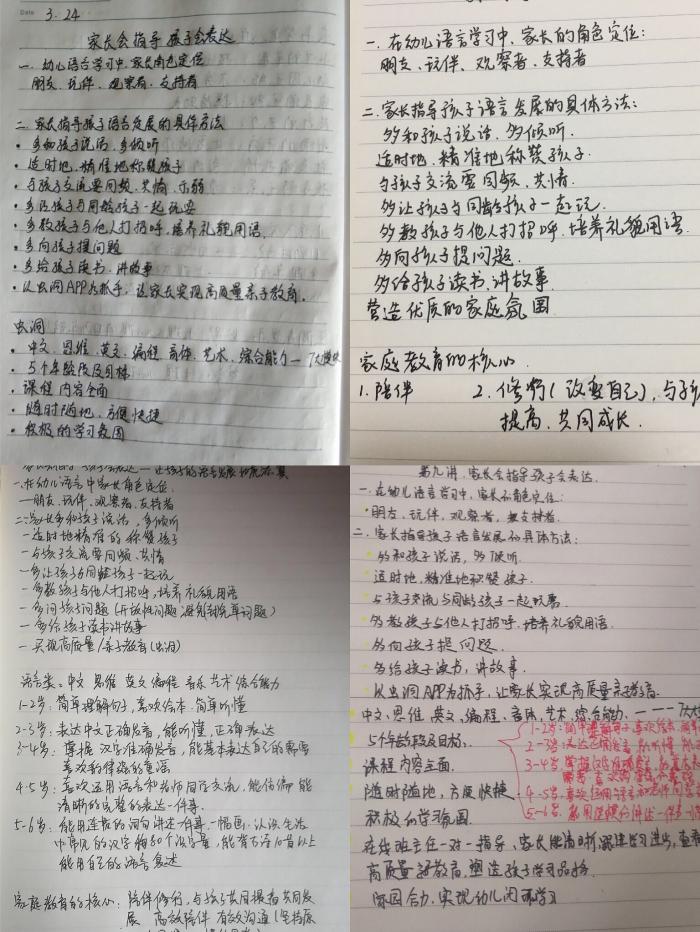 Date 3.24
家长会指导 孩子会表达
一. 幼儿语言学习中,家长角色定位
朋友、玩伴、观察者、支持者
二. 家长指导孩子语言发展的具体方法
· 多和孩子说话、多倾听
· 适时地、精准地称赞孩子
· 与孩子交流要同频、共情、示弱
· 多让孩子与同龄孩子一起玩耍
· 多教孩子与他人打招呼、培养礼貌用语.
· 多向孩子提问题
· 多给孩子读书、讲故事
· 以虫洞APP为抓手,让家长实现高质量亲子教育.
虫洞
· 中文、思维、英文、编程、音体、艺术、综合能力一 7大模块
· 5个年龄段及目标
· 课程内容全面
· 随时随地、方便快捷
· 积极的学习氛围
一. 在幼儿语言学习中、家长的角色定位:
朋友、玩伴、观察者、支持者
二. 家长指导孩子语言发展的具体方法:
多和孩子说话、多倾听.
适时地、精准地称赞孩子.
与孩子交流要同频、共情.
多让孩子与同龄孩子一起玩.
多教孩子与他人打招呼、培养礼貌用语.
多向孩子提问题.
多给孩子读书、讲故事.
营造优质的家庭氛围
家庭教育的核心.
1. 陪伴 2. 修行(改变自己),与孩
提高、共同成长.
一.在幼儿语言中家长角色定位.
—朋友、玩伴、观察者、支持者
二.家长多和孩子说话,多倾听
—适时地精准的称赞孩子
—与孩子交流要同频、共情
—多让孩子与同龄孩子一起玩
—多教孩子与他人打招呼,培养礼貌用语
—多问孩子问题(开放性问题,避免封闭简单问题)
—多给孩子读书讲故事
—实现高质量/亲子教育(虫洞)
语言类:中文 思维 英文 编程 音乐 艺术 综合能力
1-2岁:简单理解句子,喜欢绘本.简单听懂
2-3岁:表达中文正确发音,能听懂,正确表达
3-4岁:掌握汉字准确发音,能基本表达自己的需要
喜欢韵律强的童谣
4-5岁:喜欢运用语言和老师同学交流,能
清晰的完整的表达一件事.
5-6岁:能用连贯的词句讲述一件事.一幅画.认识生活
中常见的汉字
能用自己的语言复述
家庭教育的核心:陪伴修行,与孩子共同提高共同发
展 高效陪伴 有效沟通
第九讲. 家长会指导孩子会表达.
一. 在幼儿语言学习中,家长的角色定位:
· 朋友、玩伴、观察者、支持者.
二. 家长指导孩子语言发展的具体方法:
· 多和孩子说话,多倾听.
· 适时地、精准地称赞孩子.
· 与孩子交流与同龄孩子一起玩耍.
· 多教孩子与他人打招呼.培养礼貌用语.
· 多向孩子提问题.
· 多给孩子读书,讲故事.
· 从虫洞APP为抓手,让家长实现高质量亲子教育.
中文、思维、英文、编程、音体、艺术、综合能力. 一一一7大
5个年龄段及目标.
1-2岁:
2-3岁:
课程内容全面.
3-4岁
随时随地,方便快捷
4-5岁.
积极的学习氛围.
5-6岁.
在线班主任一对一指导、家长能清晰了解学习进步,查看
高质量亲子教育.塑造孩子学习品格.
家园合力.实现幼儿闭环学习